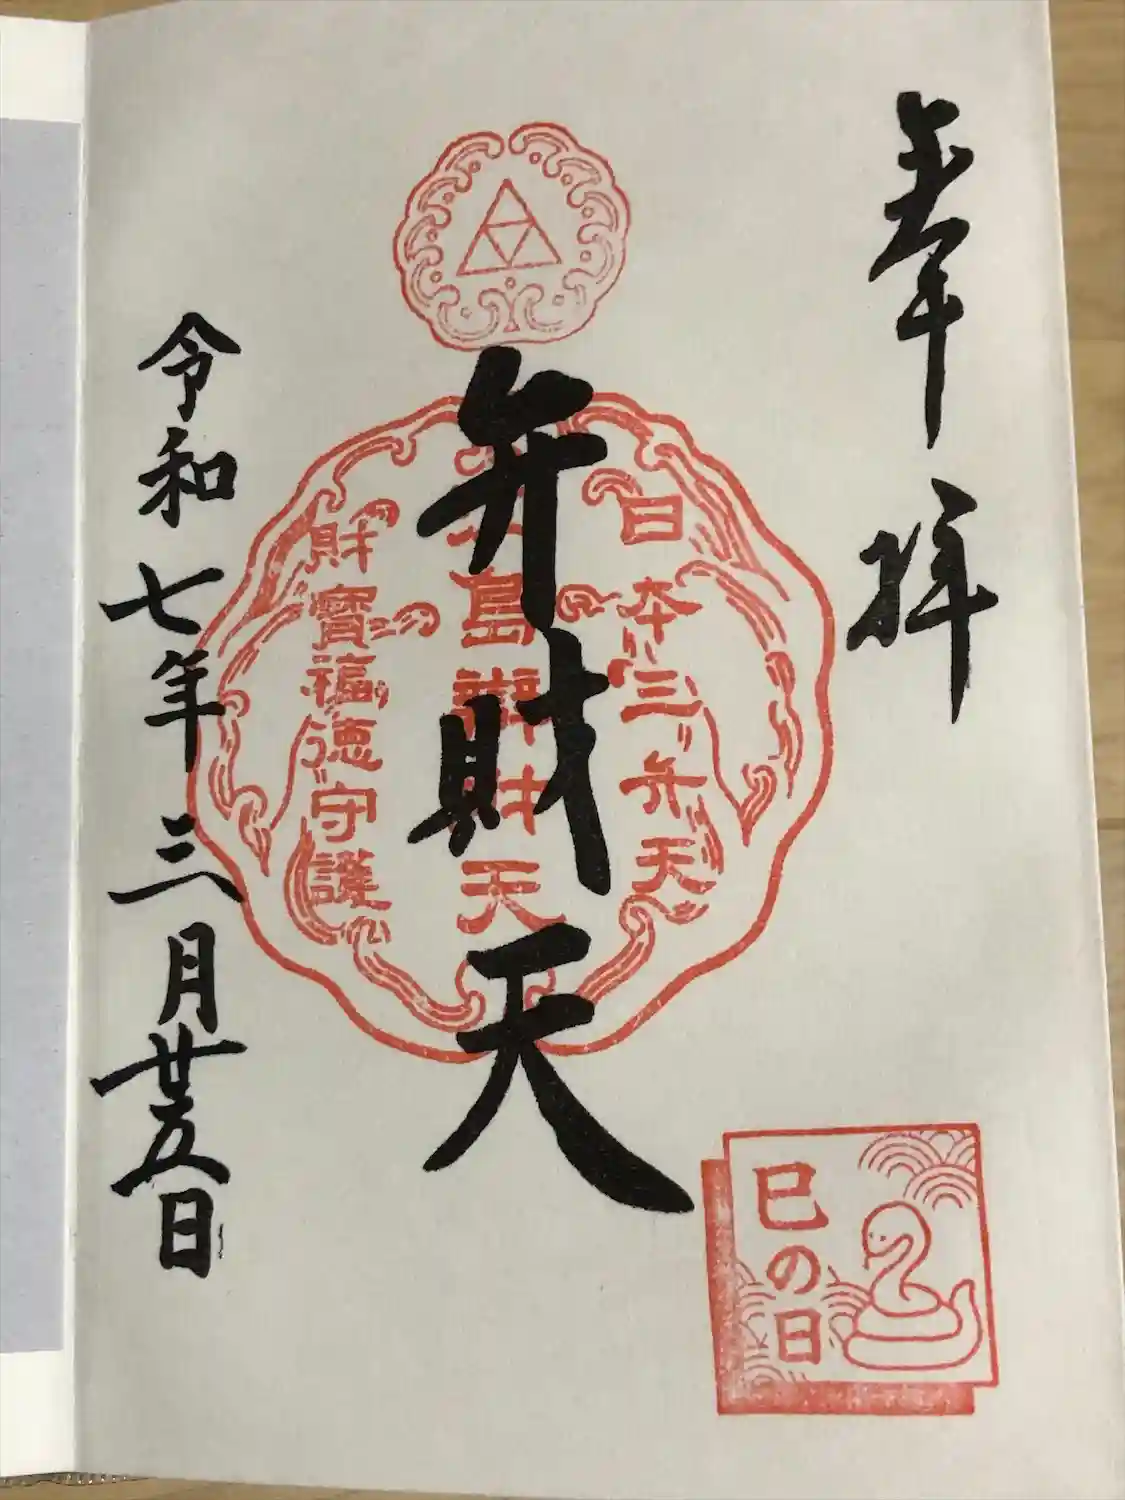 奉拝
日本三弁天
島辦財天
財寶福徳守護
弁財天
令和七年三月廿五日
巳の日